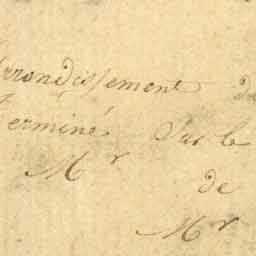 Arrondissement de
Terminé Sur le
Mr
de
Mr